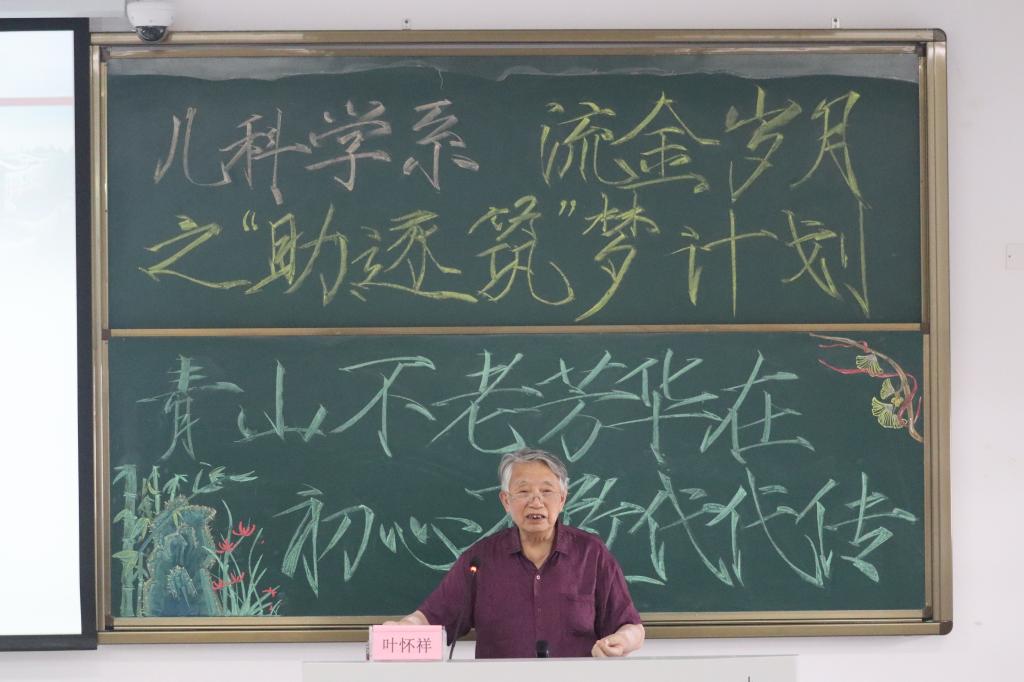 儿科学系 流金岁月
之“助逐筑”梦计划
青山不老芳华在
初心不改代代传
叶怀祥